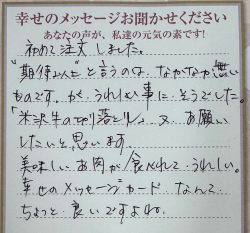 幸せのメッセージお聞かせください
あなたの声が、私達の元気の素です!
初めて注文しました。
"期待以上"と言うのは、なかなか無い
ものです。が、うれしい事に、そうでした。
「米沢牛の切り落とし」、又、お願い
したいと思います。
美味しいお肉が食べれて、うれしい。
幸せのメッセージカードなんて、
ちょっと良いですよね。